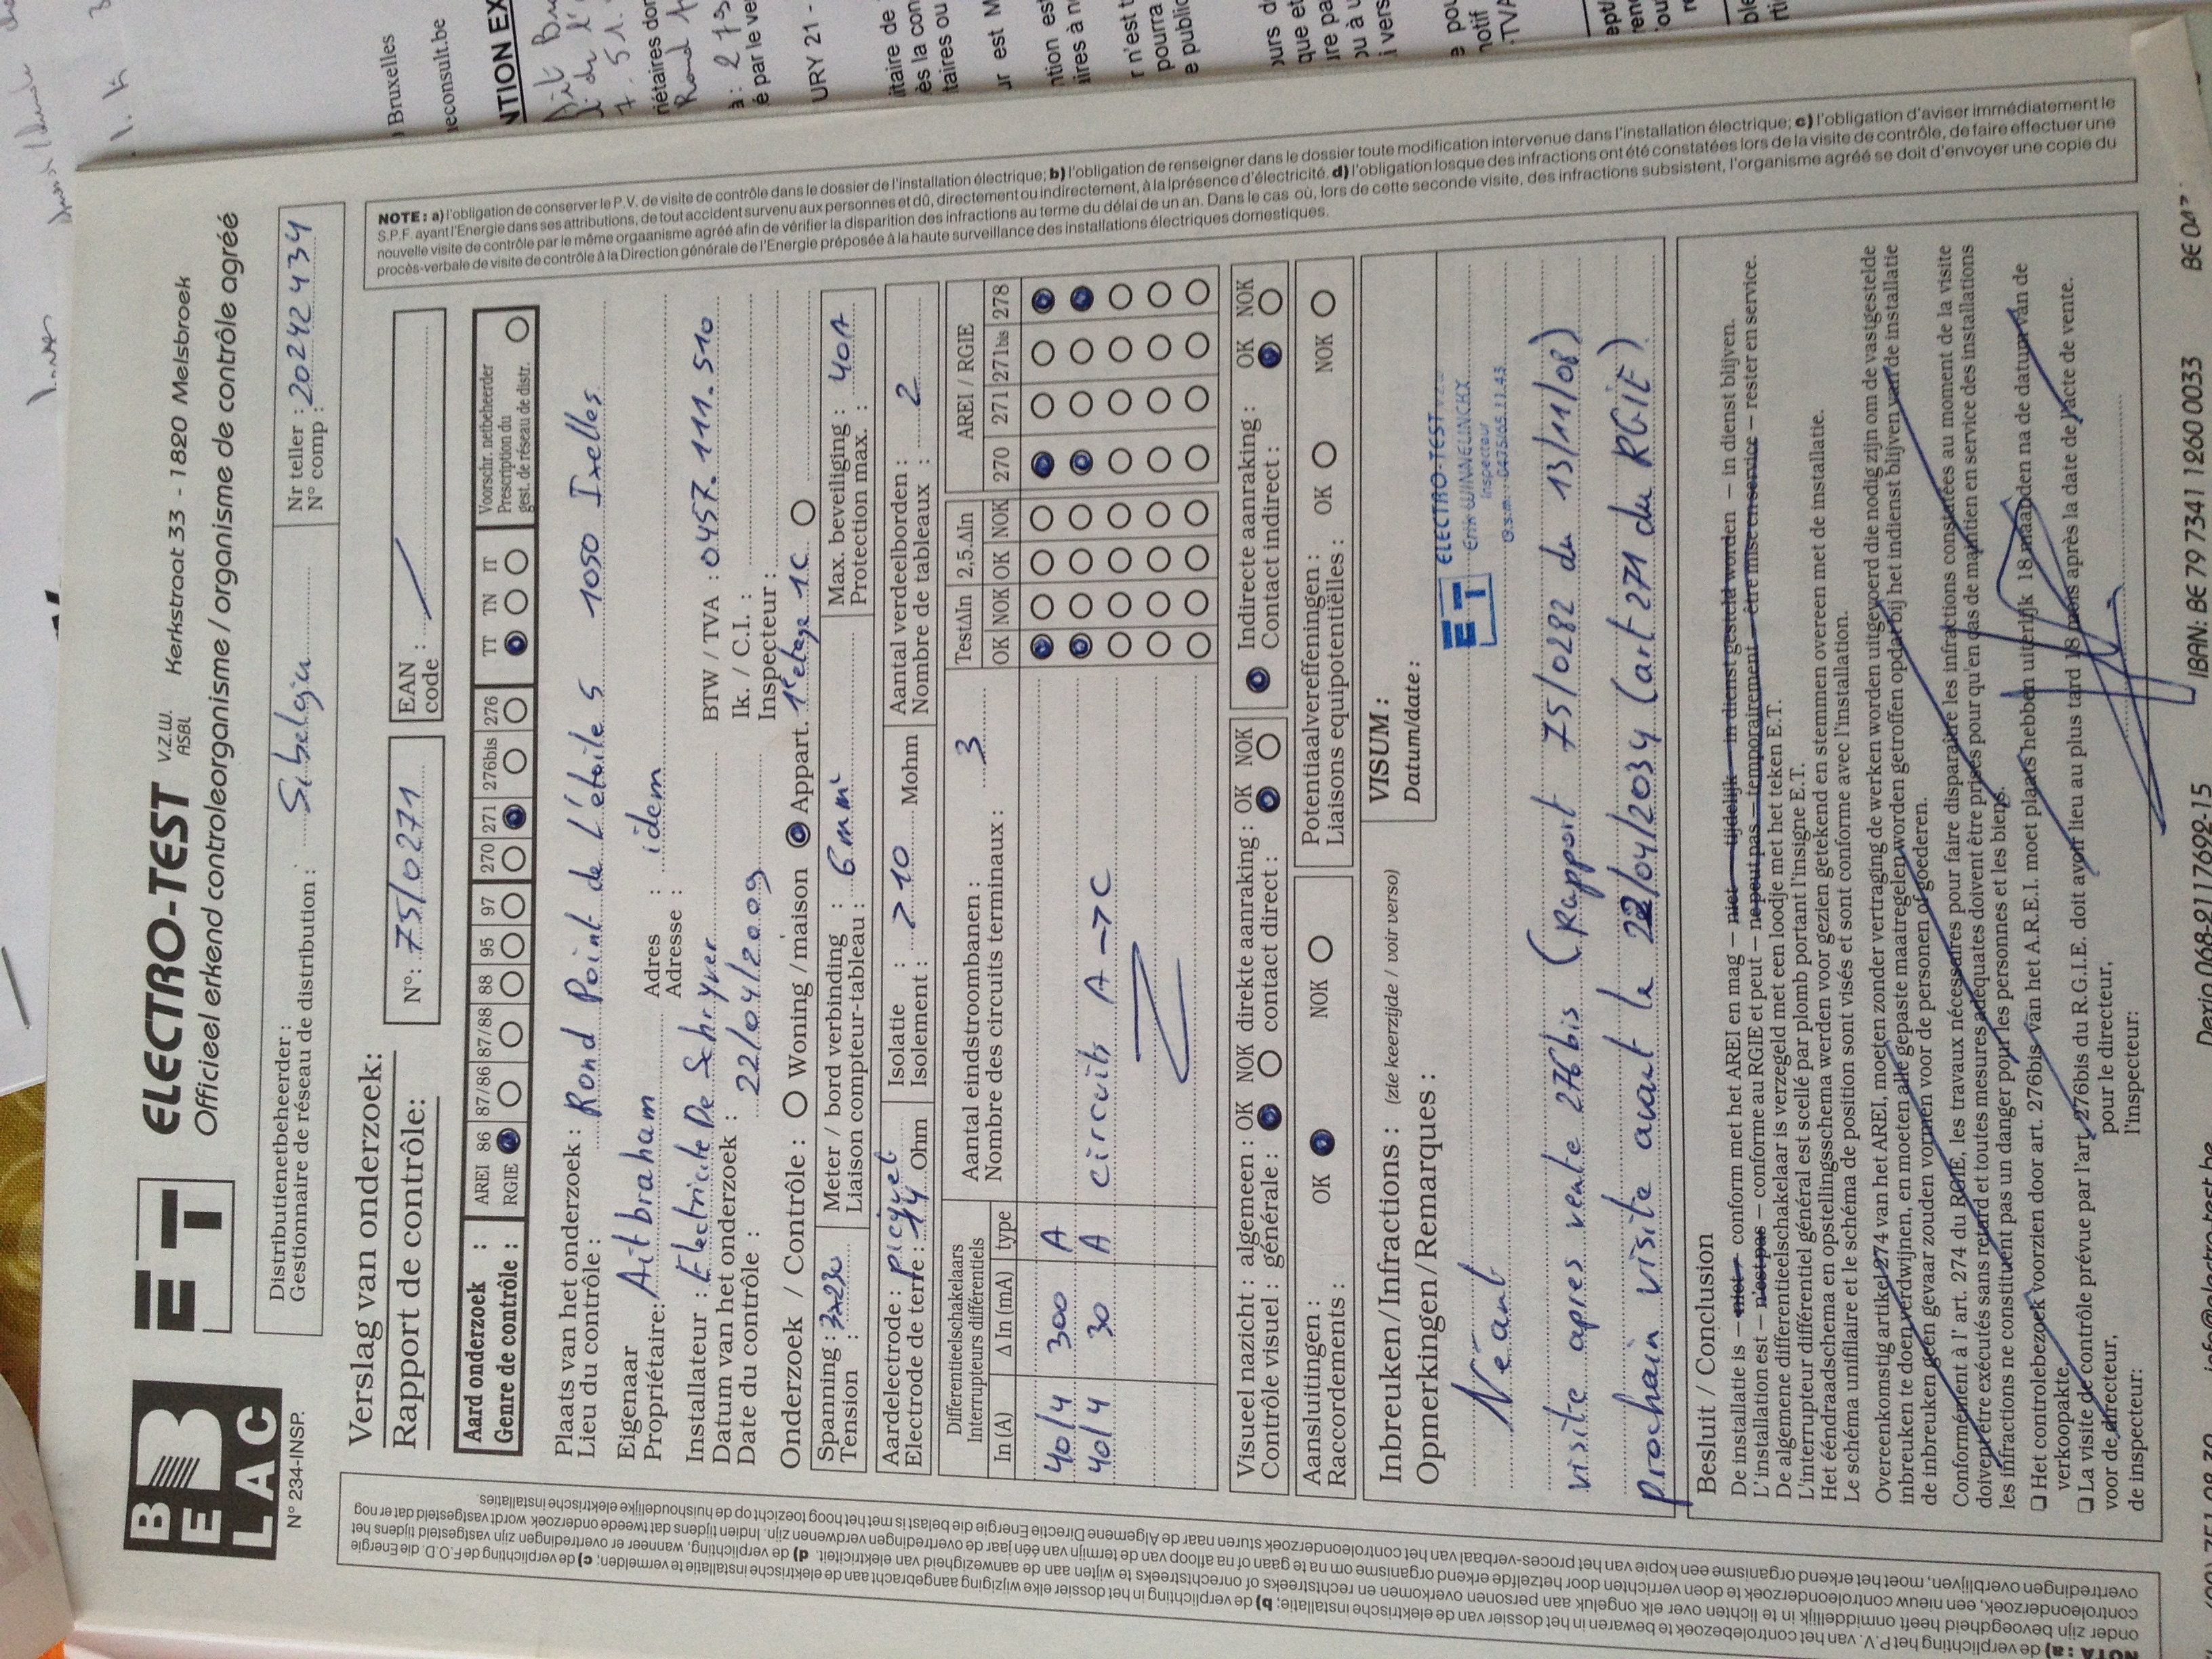 BE
LAC
N° 234-INSP.
ET ELECTRO-TEST V.Z.W. ASBL Kerkstraat 33 - 1820 Melsbroek
Officieel erkend controleorganisme / organisme de contrôle agréé
Distributienetbeheerder :
Gestionnaire de réseau de distribution : Sibelga
Nr teller :
N° comp : 20242434
Verslag van onderzoek:
Rapport de contrôle:
N°: 75/0271
EAN
code :
Aard onderzoek :
Genre de contrôle :
AREI 86 87/86 87/88 88 95 97 270 271 276bis 276 TT TN IT
RGIE
Voorschr. netbeheerder
Prescription du
gest. de réseau de distr.
Plaats van het onderzoek :
Lieu du contrôle : Rond Point de L'étoile 5 1050 Ixelles
Eigenaar
Propriétaire: Ait braham
Adres
Adresse : idem
Installateur : Electricité De Schryver BTW / TVA : 0457.111.510
Datum van het onderzoek : Ik. / C.I. :
Date du contrôle : 22/04/2009 Inspecteur :
Onderzoek / Contrôle : Woning / maison Appart. 1e etage 1C
Spanning :
Tension : 3x230
Meter / bord verbinding :
Liaison compteur-tableau : 6 mm²
Max. beveiliging :
Protection max. : 40A
Aardelectrode : picquet
Electrode de terre : 14 Ohm
Isolatie :
Isolement : >10 Mohm
Aantal verdeelborden :
Nombre de tableaux : 2
Differentieelschakelaars
Interrupteurs différentiels
In (A) Δ In (mA) type
Aantal eindstroombanen :
Nombre des circuits terminaux : 3
TestΔIn 2,5.ΔIn AREI / RGIE
OK NOK OK NOK 270 271 271bis 278
40/4 300 A
40/4 30 A circuits A → C
Visueel nazicht : algemeen : OK NOK direkte aanraking : OK NOK Indirecte aanraking : OK NOK
Contrôle visuel : générale : contact direct : Contact indirect :
Aansluitingen :
Raccordements : OK NOK
Potentiaalvereffeningen :
Liaisons equipotentiëlles : OK NOK
Inbreuken / Infractions : (zie keerzijde / voir verso)
Opmerkingen / Remarques :
VISUM :
Datum/date :
ET ELECTRO-TEST
Erik WINNELINCKX
Inspecteur
G.s.m. 0475/65.11.43
Néant
visite apres vente 276bis (Rapport 75/0282 du 13/11/08)
prochain visite avant le 22/04/2034 (art 271 du RGIE)
Besluit / Conclusion
De installatie is – niet – conform met het AREI en mag – niet – tijdelijk – in dienst gesteld worden – in dienst blijven.
L'installation est – n'est pas – conforme au RGIE et peut – ne peut pas – temporairement – être mise en service – rester en service.
De algemene differentieelschakelaar is verzegeld met een loodje met het teken E.T.
L'interrupteur différentiel général est scellé par plomb portant l'insigne E.T.
Het ééndraadschema en opstellingsschema werden voor gezien getekend en stemmen overeen met de installatie.
Le schéma unifilaire et le schéma de position sont visés et sont conforme avec l'installation.
Overeenkomstig artikel 274 van het AREI, moeten zonder vertraging de werken worden uitgevoerd die nodig zijn om de vastgestelde
inbreuken te doen verdwijnen, en moeten alle gepaste maatregelen worden getroffen opdat bij het indienst blijven van de installatie
de inbreuken geen gevaar zouden vormen voor de personen of goederen.
Conformément à l' art. 274 du RGIE, les travaux nécessaires pour faire disparaître les infractions constatées au moment de la visite
doivent être exécutés sans retard et toutes mesures adéquates doivent être prises pour qu'en cas de maintien en service des installations
les infractions ne constituent pas un danger pour les personnes et les biens.
❑ Het controlebezoek voorzien door art. 276bis van het A.R.E.I. moet plaats hebben uiterlijk 18 maanden na de datum van de
verkoopakte.
❑ La visite de contrôle prévue par l'art. 276bis du R.G.I.E. doit avoir lieu au plus tard 18 mois après la date de l'acte de vente.
voor de directeur, pour le directeur,
de inspecteur: l'inspecteur:
NOTE : a) l'obligation de conserver le P.V. de visite de contrôle dans le dossier de l'installation électrique; b) l'obligation de renseigner dans le dossier toute modification intervenue dans l'installation électrique; c) l'obligation d'aviser immédiatement le
S.P.F. ayant l'Energie dans ses attributions, de tout accident survenu aux personnes et dû, directement ou indirectement, à la présence d'électricité. d) l'obligation losque des infractions ont été constatées lors de la visite de contrôle, de faire effectuer une
nouvelle visite de contrôle par le même orgaanisme agréé afin de vérifier la disparition des infractions au terme du délai de un an. Dans le cas où, lors de cette seconde visite, des infractions subsistent, l'organisme agréé se doit d'envoyer une copie du
procès-verbale de visite de contrôle à la Direction générale de l'Energie préposée à la haute surveillance des installations électriques domestiques.
NOTA : a) de verplichting het P.V. van het controlebezoek te bewaren in het dossier van de elektrische installatie; b) de verplichting in het dossier elke wijziging aangebracht aan de elektrische installatie te vermelden; c) de verplichting de F.O.D. die Energie
onder zijn bevoegdheid heeft onmiddellijk in te lichten over elk ongeluk aan personen overkomen en rechtstreeks of onrechtstreeks te wijten aan de aanwezigheid van elektriciteit. d) de verplichting, wanneer er overtredingen zijn vastgesteld tijdens het
controleonderzoek, een nieuw controleonderzoek te doen verrichten door hetzelfde erkend organisme om na te gaan of na afloop van de termijn van één jaar de overtredingen verdwenen zijn. Indien tijdens dat tweede onderzoek wordt vastgesteld dat er nog
overtredingen overblijven, moet het erkend organisme een kopie van het proces-verbaal van het controleonderzoek sturen naar de Algemene Directie Energie die belast is met het hoog toezicht op de huishoudelijke elektrische installaties.
info@electro-test.be Dexia 068-9117692-15 IBAN: BE 79 7341 1260 0033
Bruxelles
econsult.be
URY 21 -